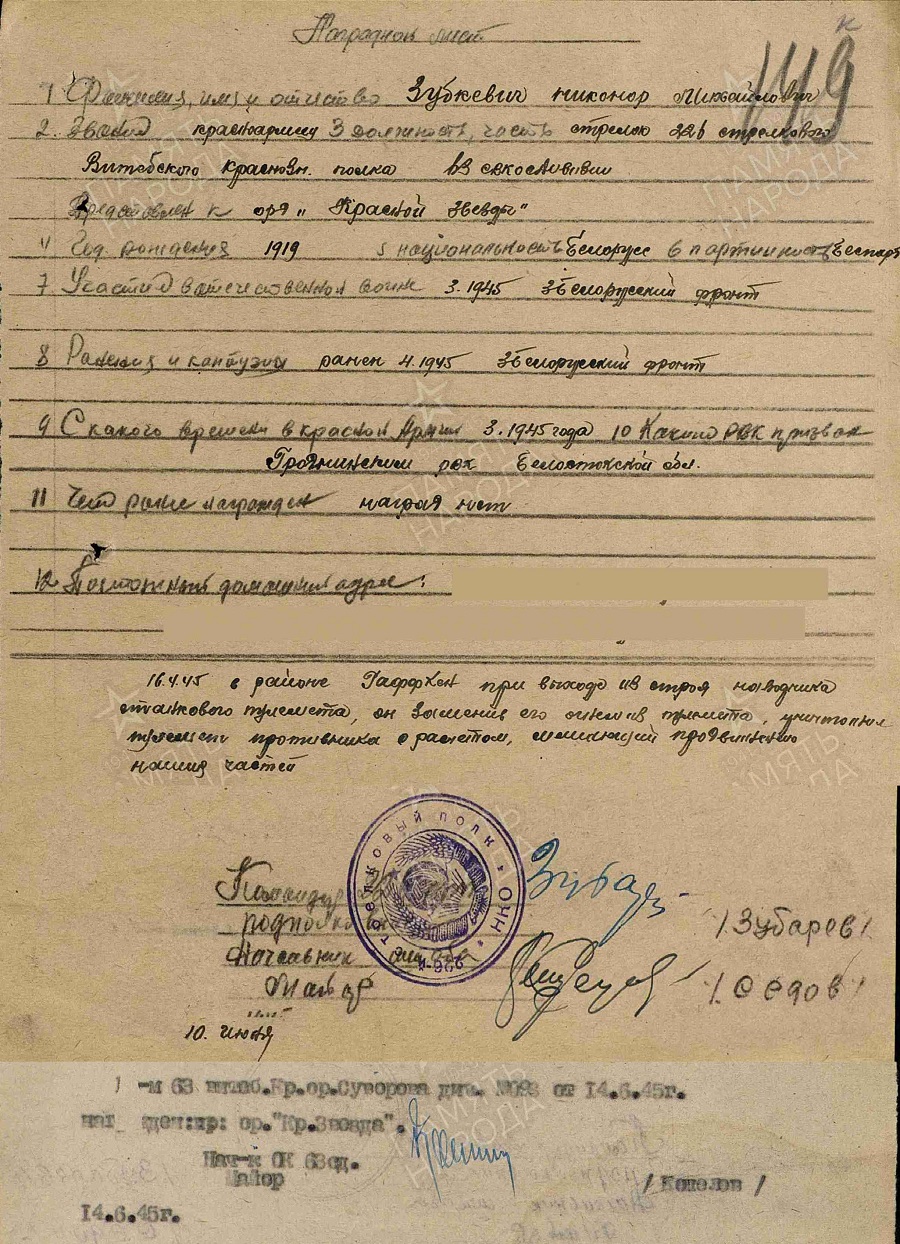 Наградной лист
119
1 Фамилия, имя и отчество Зубкевич Никонор Михайлович
2. Звание красноармеец 3 должность, часть стрелок 226 стрелкового
Витебского Краснозн. полка 63 св. кос. дивизии
Представлен к орд. "Красной Звезды"
4 Год рождения 1919 5 национальность Белорус 6 партийность Беспарт
7 Участие в отечественной войне 3.1945 3 Белорусский фронт
8 Ранения и контузии ранен 4.1945 3 Белорусский фронт
9 С какого времени в красной Армии 3.1945 года 10 Каким РВК призван
рвк Белостокской обл.
11 Чем ранее награжден наград нет
12 Постоянный домашний адрес:
16.4.45 в районе Гаффкен при выходе из строя наводчика
станкового пулемета, он заменив его огнем из пулемета, уничтожил
пулемет противника с расчетом, мешающий продвижению
наших частей
СТРЕЛКОВЫЙ ПОЛК * ОНН * 226-й
Командир
подполковник
/Зубарев/
Начальник штаба
Майор
/Седов/
10. июня
-м 63 витеб.Кр.ор.Суворова див. №093 от 14.6.45г.
наг ден:пр: ор."Кр.Звезда".
Нач-к ОК 63сд.
Майор
/ Копелов /
14.6.45г.
ПАМЯТЬ НАРОДА